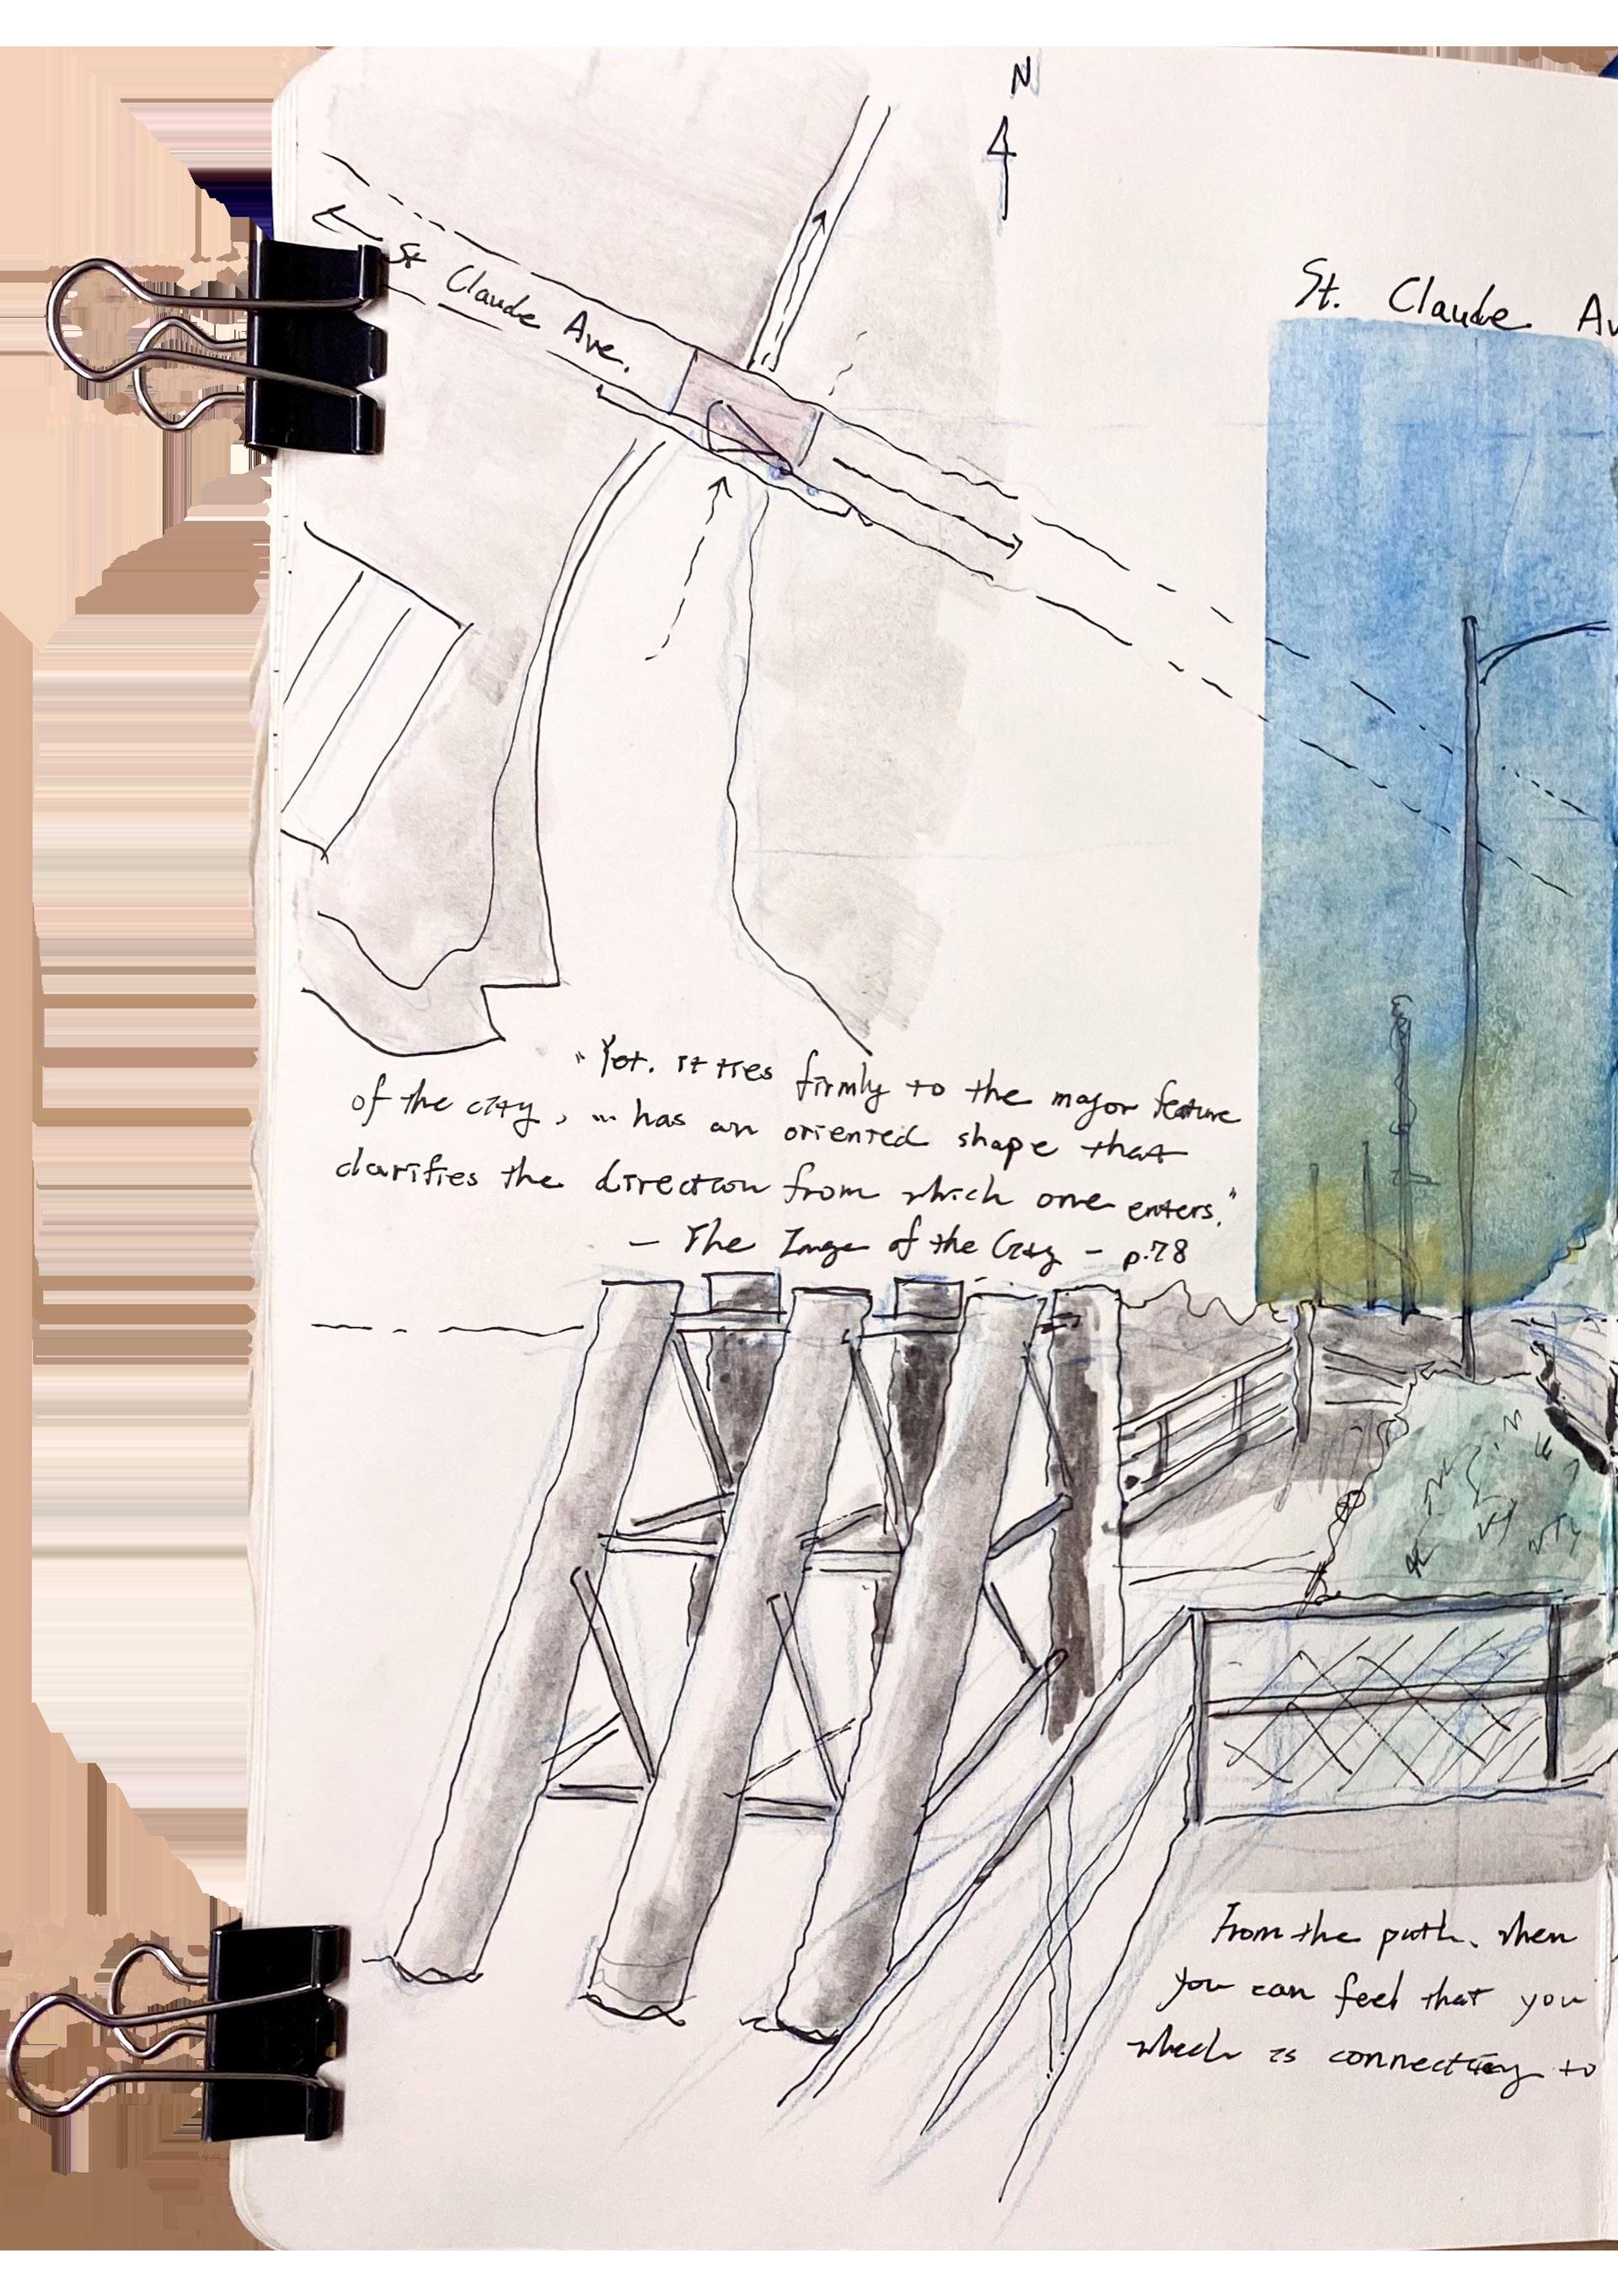 N
St Claude Ave.
St. Claude Av
"Yet. it ties firmly to the major feature
of the city, ... has an oriented shape that
clarifies the direction from which one enters."
- The Image of the City - p.78
From the path, when
you can feel that you
which is connecting to